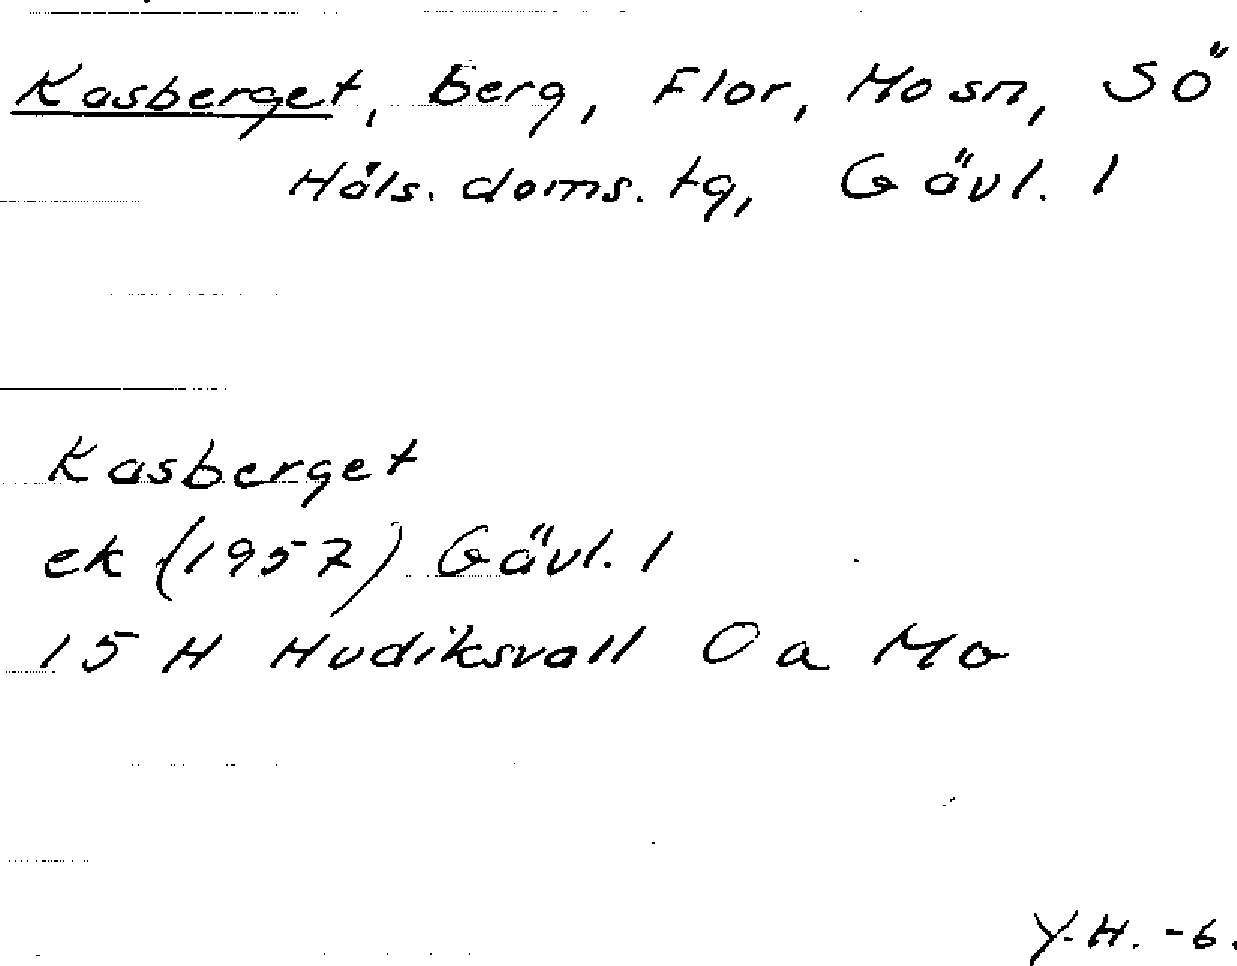 Kasberget, berg, Flor, Mosn, Sö
Häls. doms. tg, Gävl. l
Kasberget
ek (1957) Gävl. l
15 H Hudiksvall O a Mo
Y.H. -6.